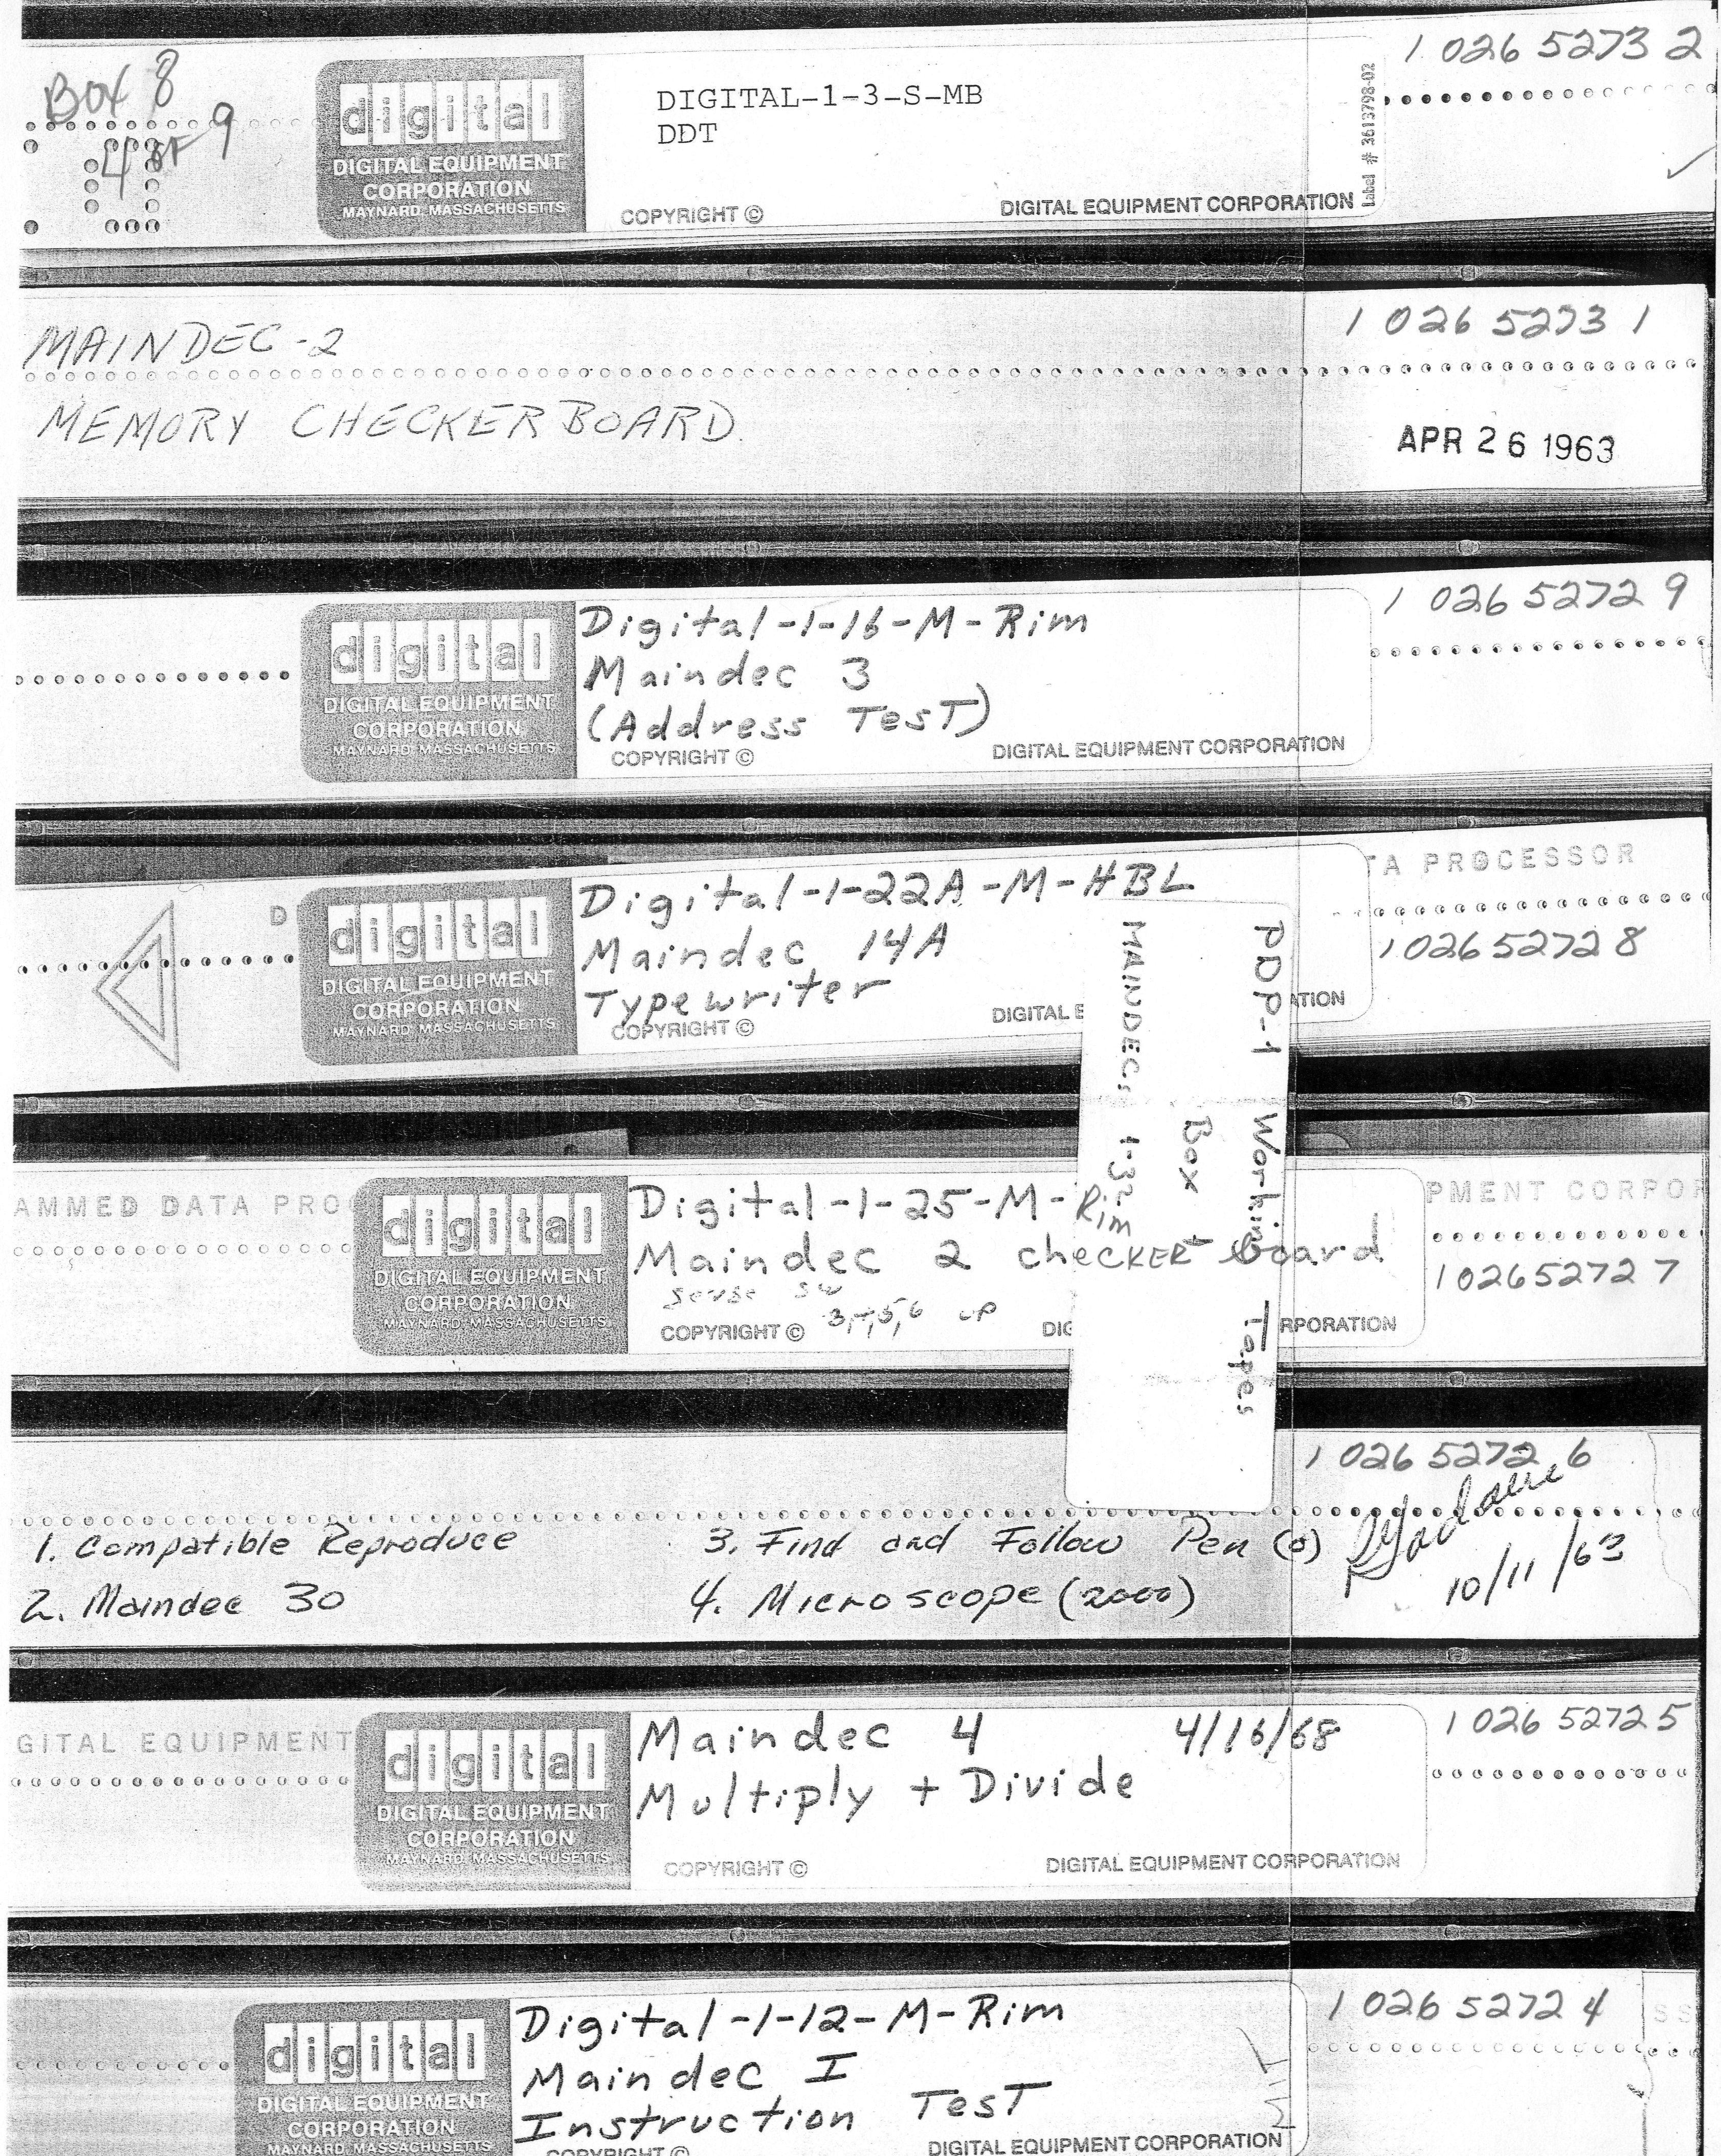 Box 8
4 of 9
digital
DIGITAL EQUIPMENT
CORPORATION
MAYNARD, MASSACHUSETTS
DIGITAL-1-3-S-MB
DDT
COPYRIGHT ©
DIGITAL EQUIPMENT CORPORATION
Label # 3613798-02
1 026 5273 2
MAINDEC-2
MEMORY CHECKERBOARD
1 026 5273 1
APR 26 1963
digital
DIGITAL EQUIPMENT
CORPORATION
MAYNARD, MASSACHUSETTS
Digital-1-16-M-Rim
Maindec 3
(Address Test)
COPYRIGHT ©
DIGITAL EQUIPMENT CORPORATION
1 026 5272 9
D
digital
DIGITAL EQUIPMENT
CORPORATION
MAYNARD, MASSACHUSETTS
Digital-1-22A-M-HBL
Maindec 14A
Typewriter
COPYRIGHT ©
DIGITAL E
ATION
TA PROCESSOR
1 026 5272 8
PDP-1 Working Tapes
Box
MAINDEC, 1-32
AMMED DATA PRO
digital
DIGITAL EQUIPMENT
CORPORATION
MAYNARD, MASSACHUSETTS
Digital-1-25-M-Rim
Maindec 2 checkerboard
sense sw
3,4,5,6 up
COPYRIGHT ©
DIG
RPORATION
PMENT CORPOR
1 026 5272 7
1 026 5272 6
1. Compatible Reproduce
2. Maindec 30
3. Find and Follow Pen (0)
4. Microscope (2000)
10/11/63
GITAL EQUIPMENT
digital
DIGITAL EQUIPMENT
CORPORATION
MAYNARD, MASSACHUSETTS
Maindec 4 4/16/68
Multiply + Divide
COPYRIGHT ©
DIGITAL EQUIPMENT CORPORATION
1 026 5272 5
digital
DIGITAL EQUIPMENT
CORPORATION
MAYNARD, MASSACHUSETTS
Digital-1-12-M-Rim
Maindec I
Instruction Test
COPYRIGHT ©
DIGITAL EQUIPMENT CORPORATION
1 026 5272 4
SS